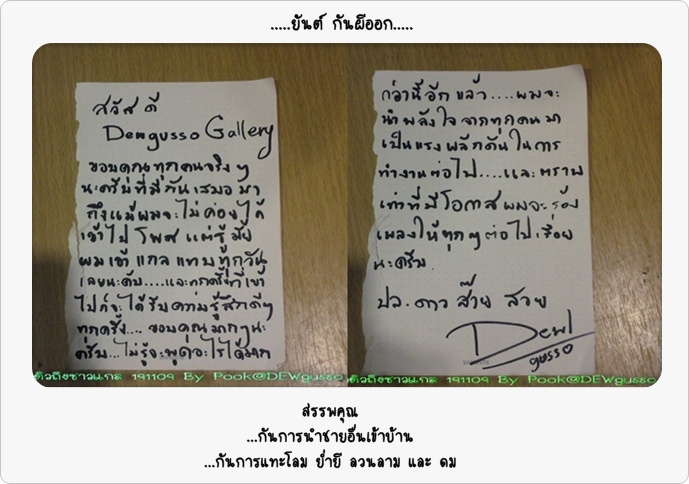 .....ยันต์ กันผีออก.....
สวัสดี
Dewgusso Gallery
ขอบคุณทุกคนจริงๆ
นะครับที่มีกันเสมอมา
ถึงแม้ผมจะไม่ค่อยได้
เข้าไปโพส แต่รู้มั้ย
ผมเข้าแกลแทบทุกวัน
เลยนะคับ....และทุกครั้งที่เข้า
ไปก็จะได้รับความรู้สึกดีๆ
ทุกครั้ง....ขอบคุณมากๆนะ
ครับ...ไม่รู้จะพูดอะไรได้มาก
กว่านี้อีกแล้ว....ผมจะ
นำพลังใจจากทุกคนมา
เป็นแรงผลักดันในการ
ทำงานต่อไป....และตราบ
เท่าที่มีโอกาสผมจะร้อง
เพลงให้ทุกๆต่อไปเรื่อย
นะครับ
ปล. ดาว ส๊วย สวย
Dew
gusso
ดิวถึงชาวแกล 191109 By Pook@DEWgusso
ดิวถึงชาวแกล 191109 By Pook@DEWgusso
สรรพคุณ
...กันการนำชายอื่นเข้าบ้าน
...กันการแทะโลม ย่ำยี ลวนลาม และ ดม